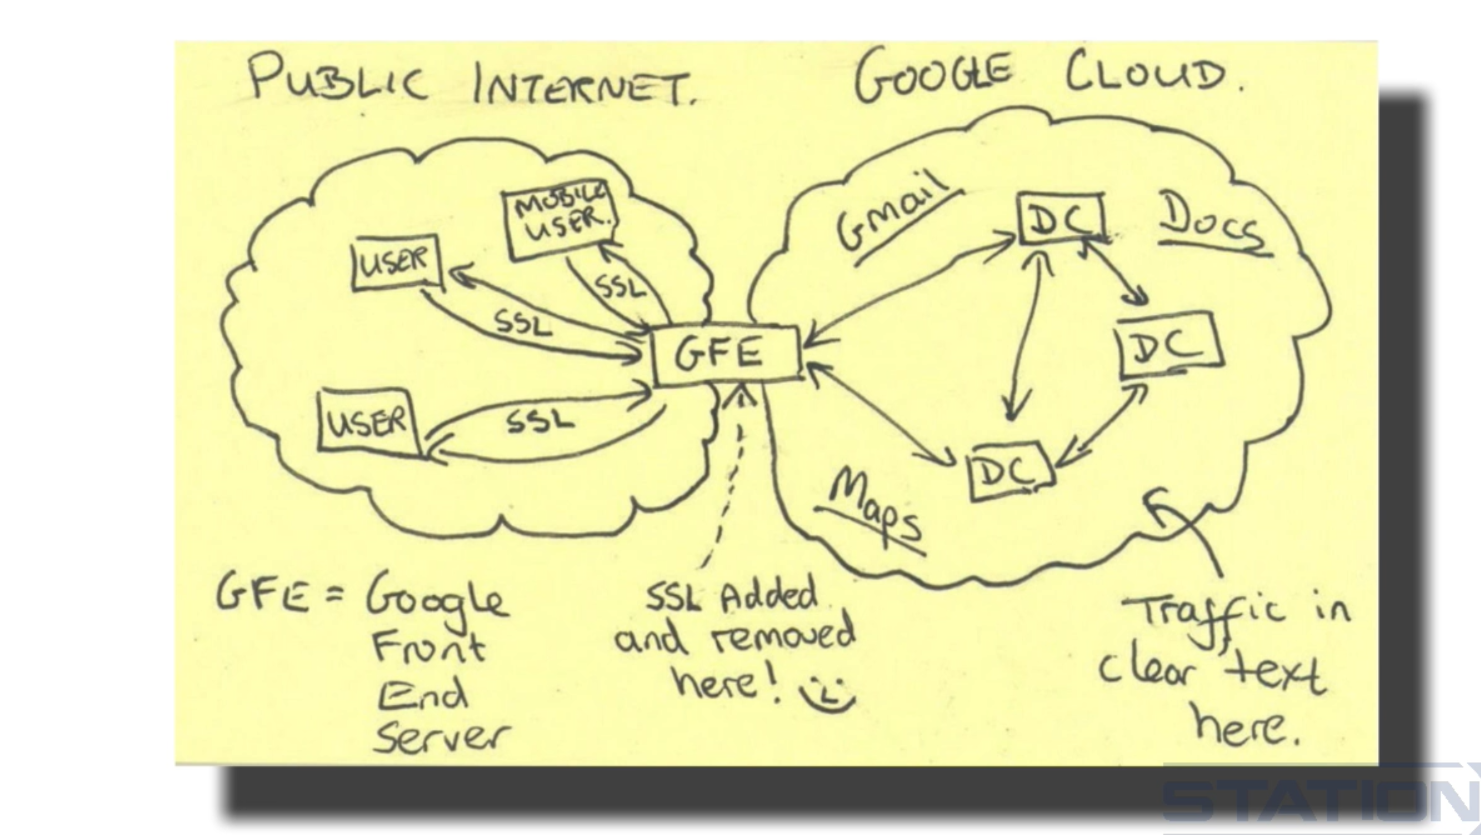 PUBLIC INTERNET.
GOOGLE CLOUD.
MOBILE
USER.
USER
SSL
SSL
USER
SSL
GFE
Gmail
DC
Docs
DC
DC
Maps
GFE = Google
Front
End
Server
SSL Added
and removed
here!
Traffic in
clear text
here.
STATION